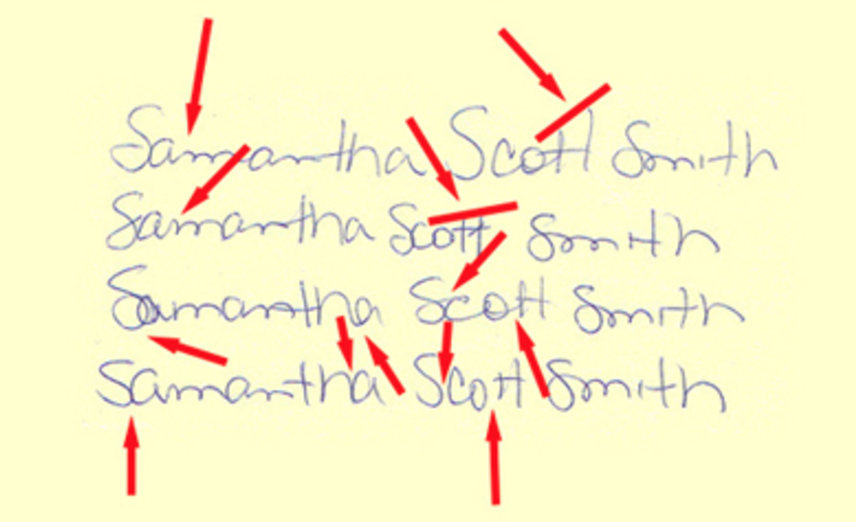 Samantha Scott Smith
Samantha Scott Smith
Samantha Scott Smith
Samantha Scott Smith